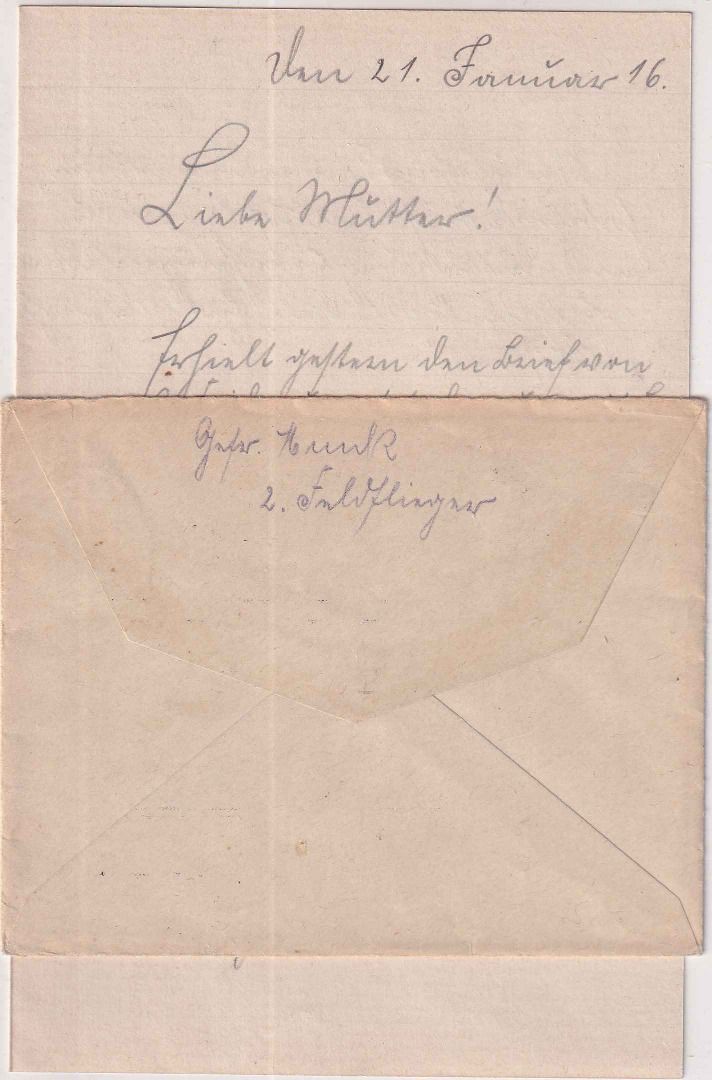 Den 21. Januar 16.
Liebe Mutter!
Erhielt gestern den Brief von
Gefr. Munk
2. Feldflieger